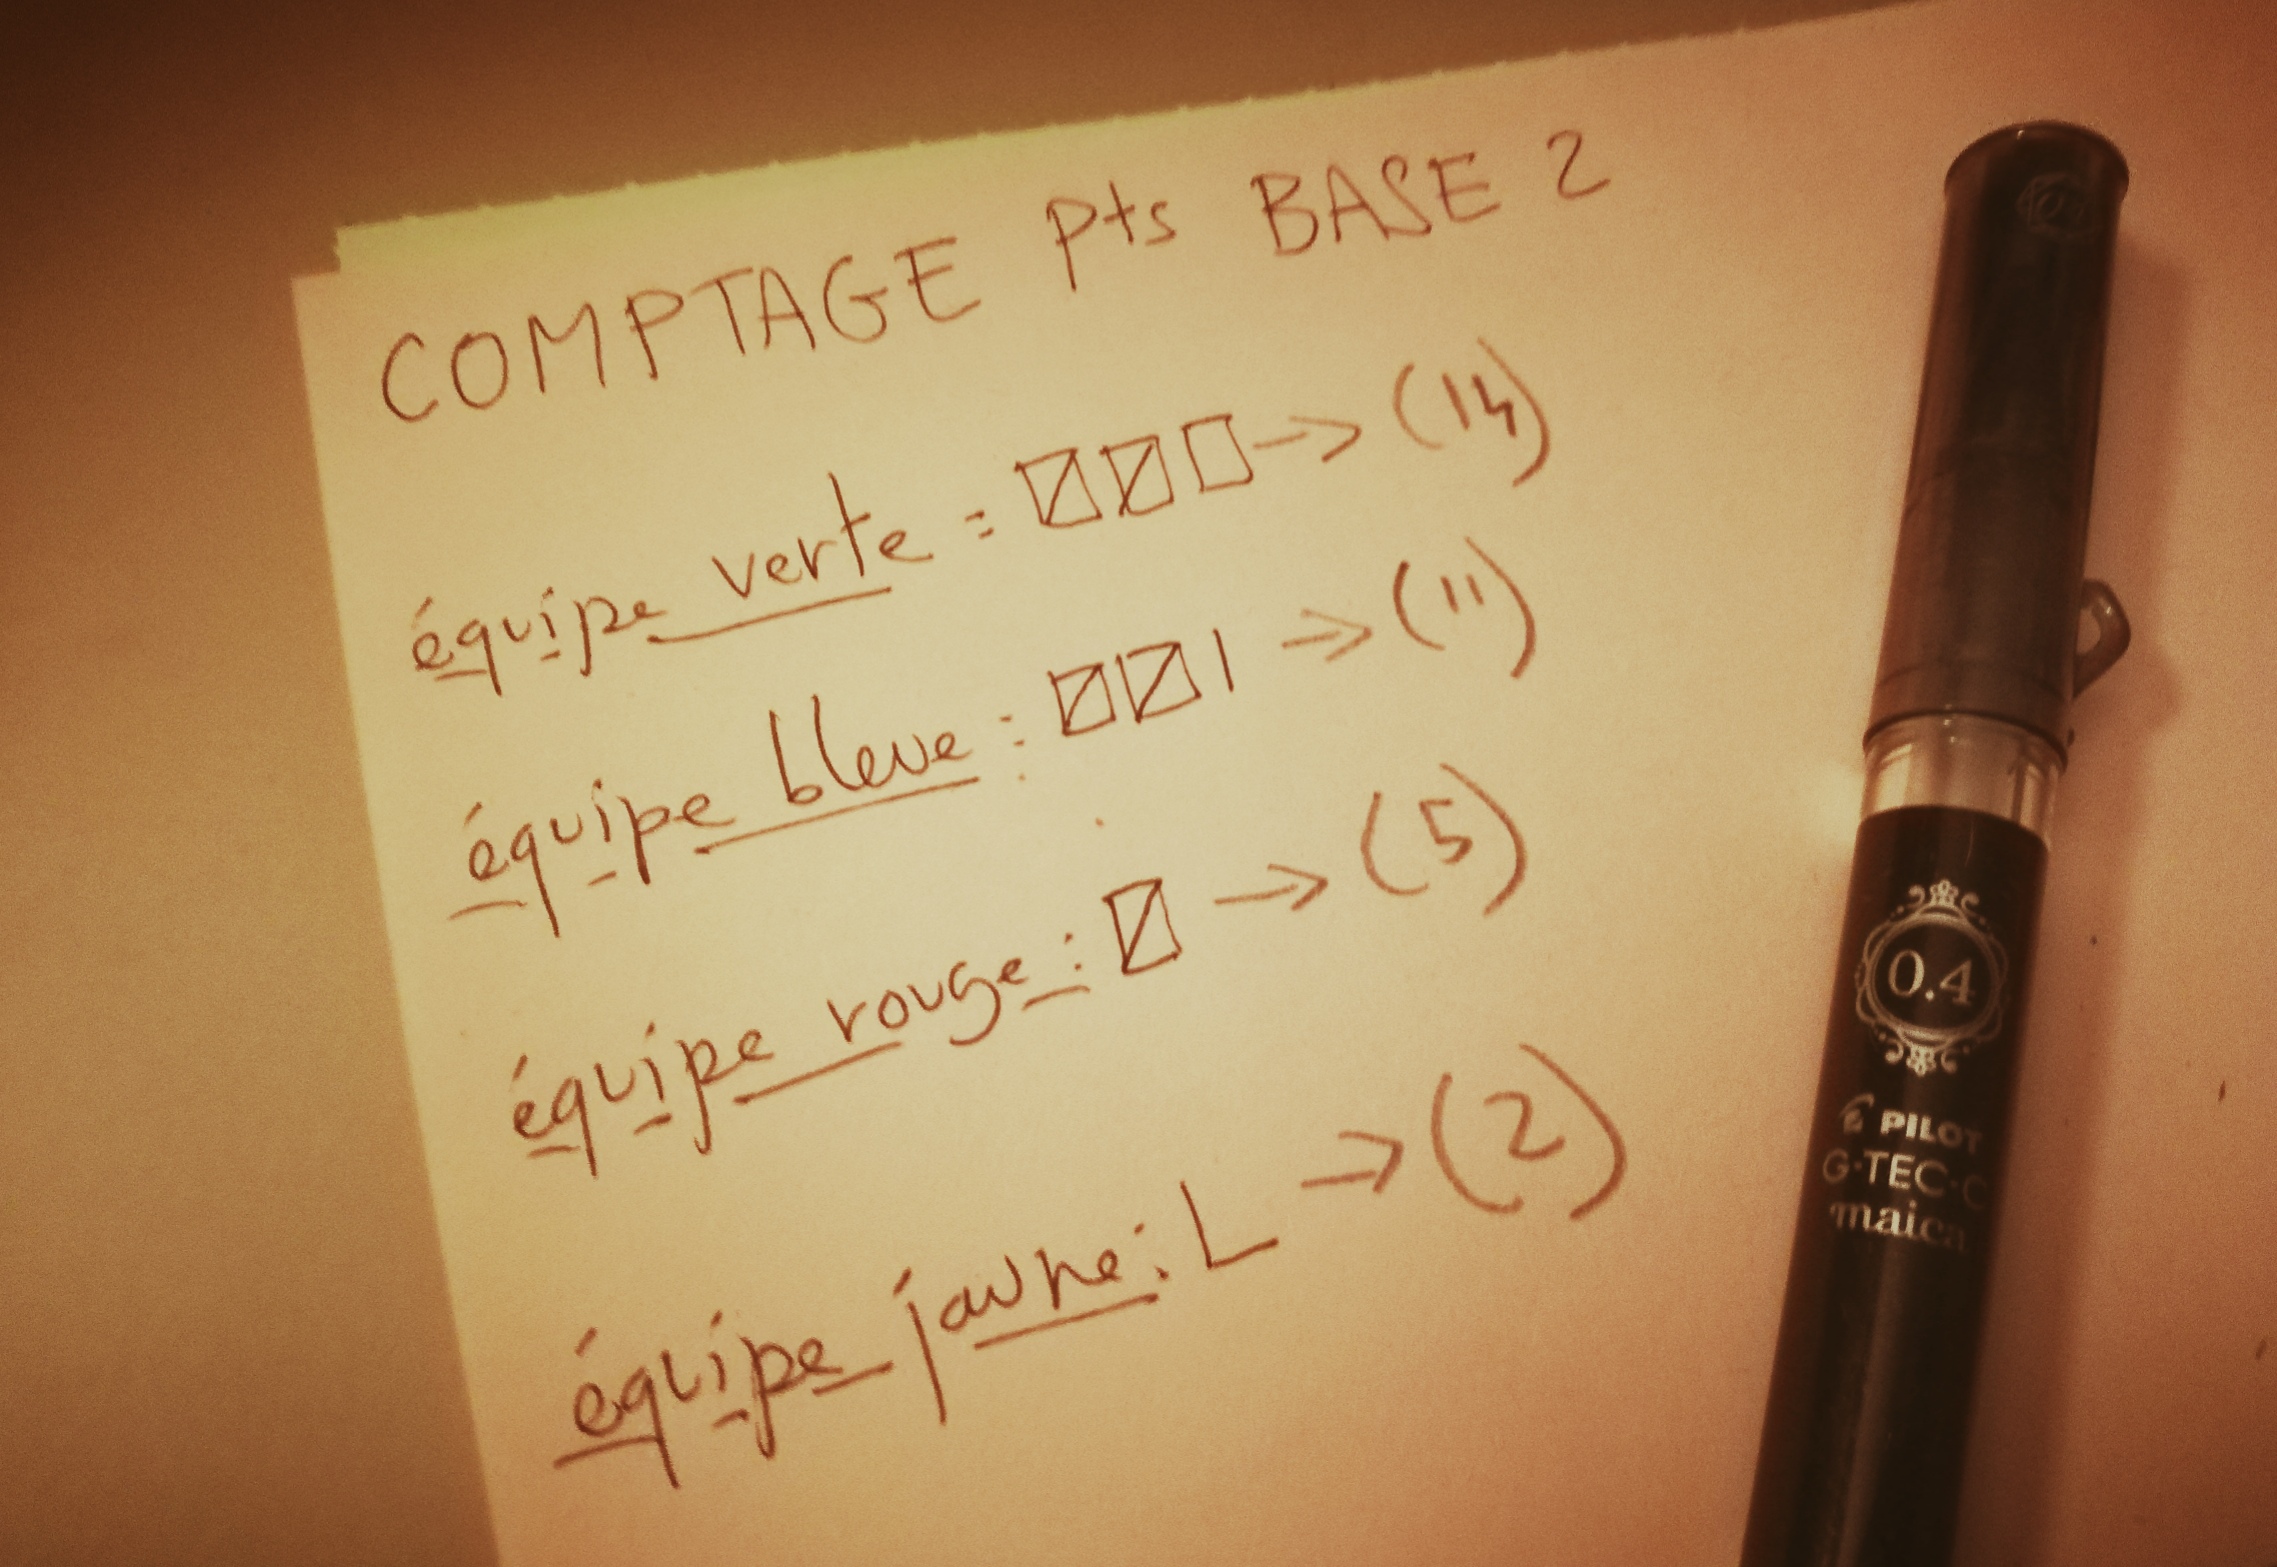 COMPTAGE Pts BASE 2
équipe verte = → (14)
équipe bleue : → (11)
équipe rouge : → (5)
équipe jaune : → (2)
0.4
PILOT
G-TEC-C
maica